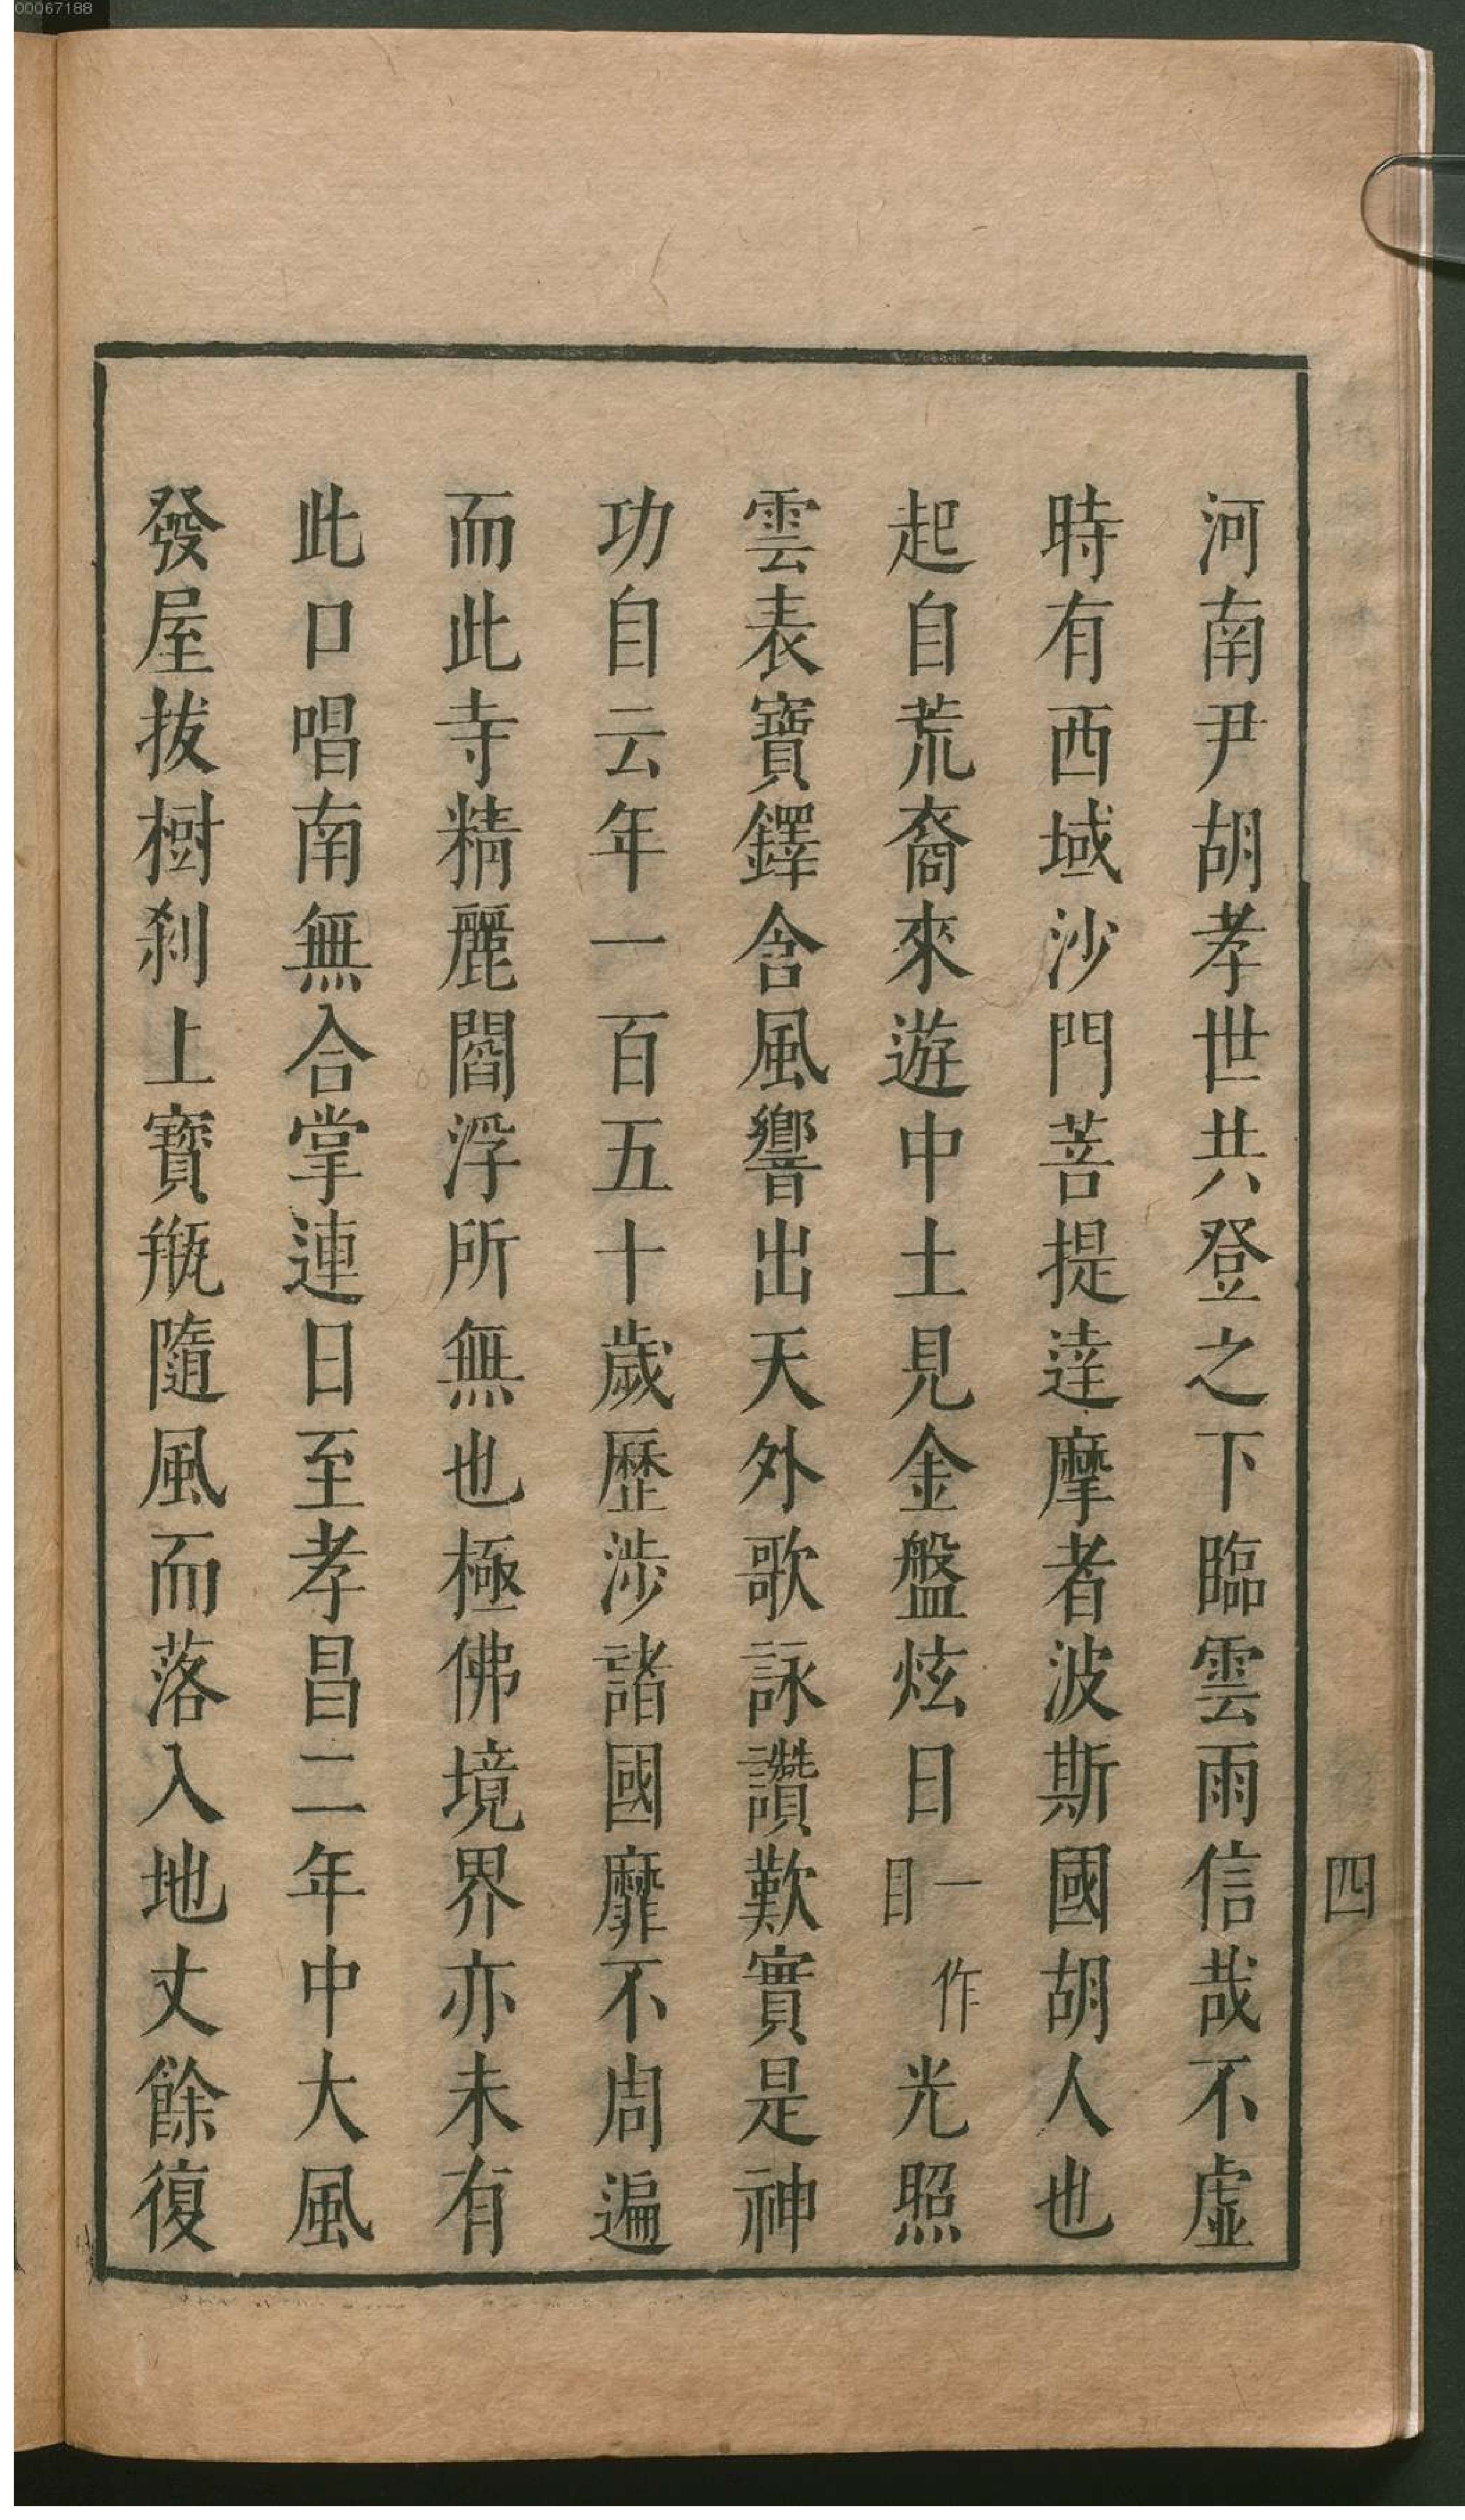 00067188
河南尹胡孝世共登之下臨雲雨信哉不虛
時有西域沙門菩提達摩者波斯國胡人也
起自荒裔來遊中土見金盤炫日一作目光照
雲表寶鐸含風響出天外歌詠讚歎實是神
功自云年一百五十歲歷涉諸國靡不周遍
而此寺精麗閻浮所無也極佛境界亦未有
此口唱南無合掌連日至孝昌二年中大風
發屋拔樹刹上寳瓶隨風而落入地丈餘復
四